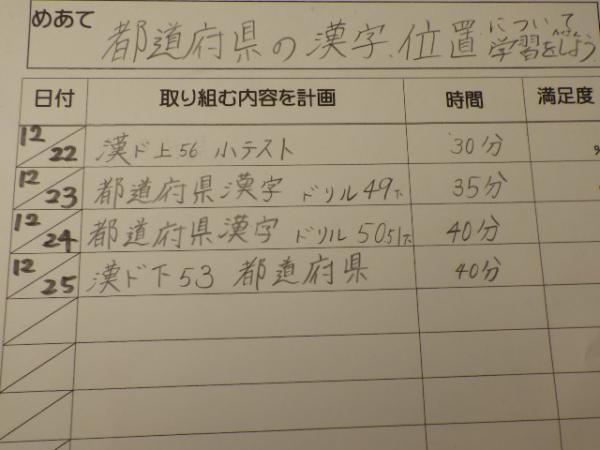 めあて 都道府県の漢字、位置について学習をしよう
日付 取り組む内容を計画 時間 満足度
12/22 漢ド上56 小テスト 30分
12/23 都道府県漢字 ドリル49下 35分
12/24 都道府県漢字 ドリル50 51下 40分
12/25 漢ド下53 都道府県 40分